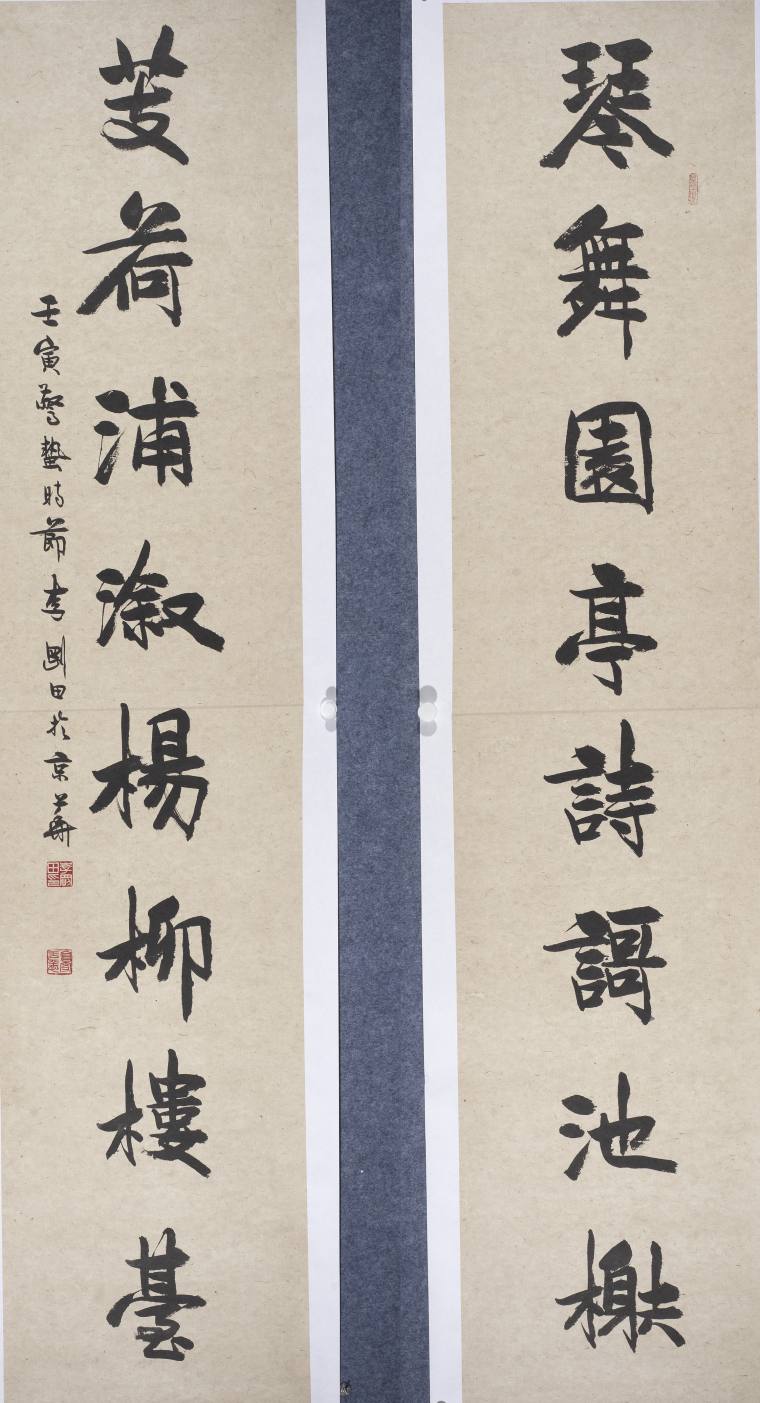 琴舞園亭詩謌池榭
芰荷浦溆楊柳樓臺
壬寅驚蟄時節李剛田於京華